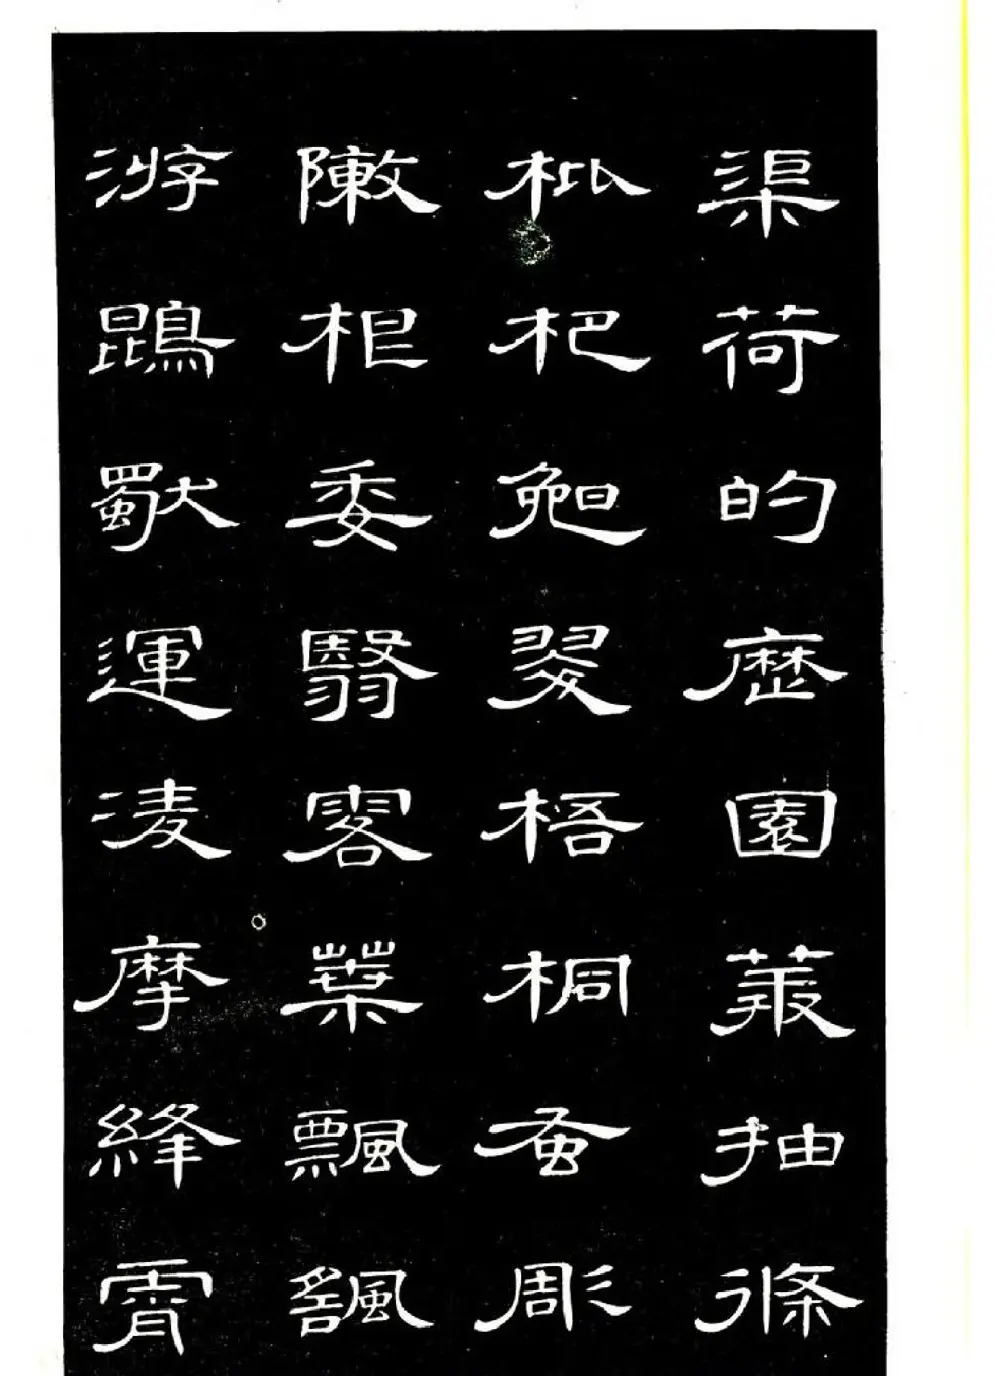 渠荷的歷園菆抽條
枇杷晚翠梧桐蚤彫
陳根委翳落葉飄颻
游鵾獨運凌摩絳霄